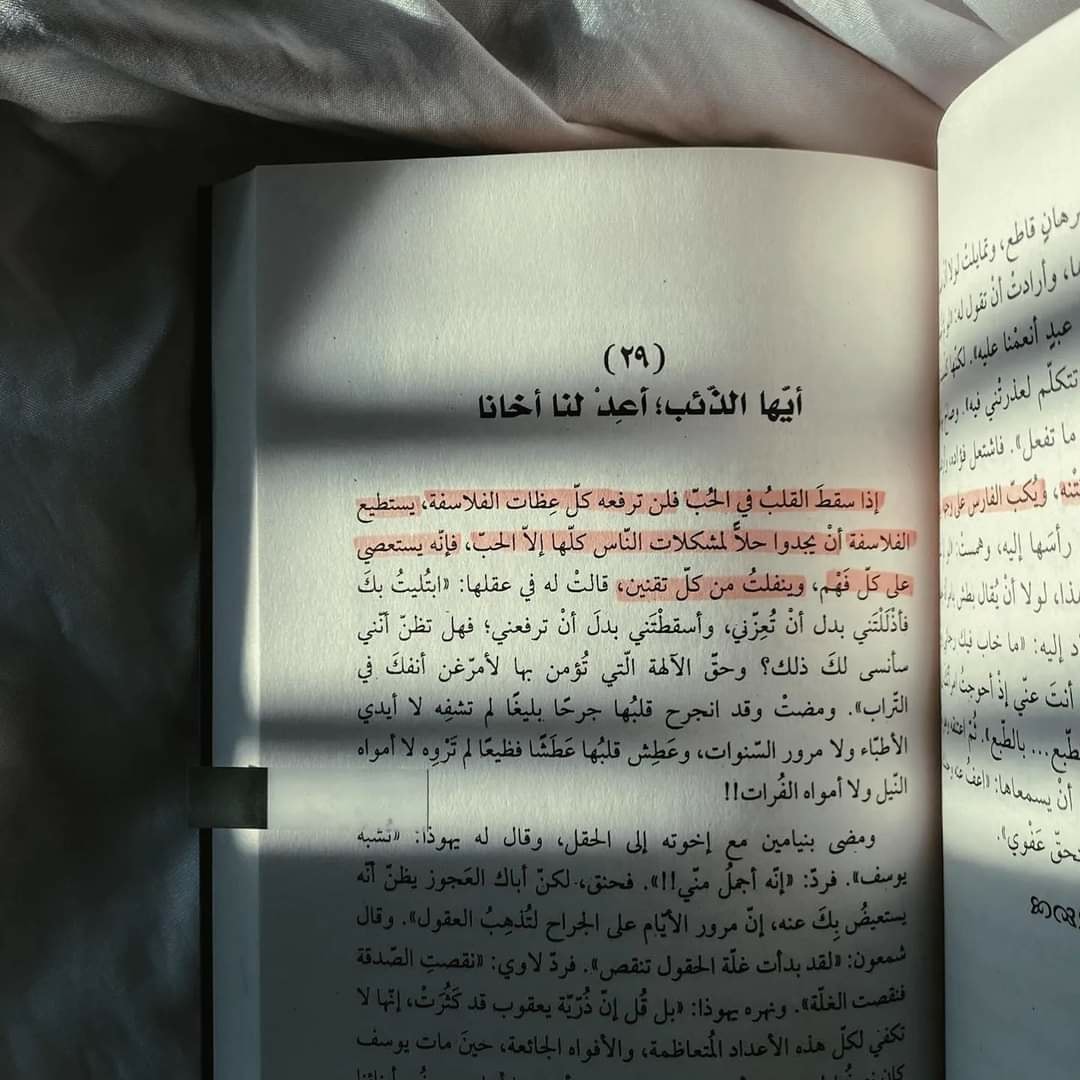 (٢٩)
أيّها الذّئب؛ أعِدْ لنا أخانا
إذا سقطَ القلبُ في الحُبّ فلن ترفعه كلّ عِظات الفلاسفة، يستطيع
الفلاسفة أنْ يجدوا حلاًّ لمشكلات النّاس كلّها إلاّ الحبّ، فإنّه يستعصي
على كلّ فَهْم، وينفلتُ من كلّ تقنين، قالتْ له في عقلها: «ابتُليتُ بكَ
فأذْلَلْتَني بدل أنْ تُعِزّني، وأسقطْتَني بدلَ أنْ ترفعني؛ فهل تظنّ أنّني
سأنسى لكَ ذلك؟ وحقّ الآلهة الّتي تُؤمن بها لأمرّغن أنفكَ في
التّراب». ومضتْ وقد انجرح قلبُها جرحًا بليغًا لم تشفِه لا أيدي
الأطبّاء ولا مرور السّنوات، وعَطِش قلبُها عَطَشًا فظيعًا لم تَرْوِه لا أمواه
النّيل ولا أمواه الفُرات!!
ومضى بنيامين مع إخوته إلى الحقل، وقال له يهوذا: «تشبه
يوسف». فردّ: «إنّه أجملُ منّي!!». فحنق، لكنّ أباك العَجوز يظنّ أنّه
يستعيضُ بِكَ عنه، إنّ مرور الأيّام على الجراح لتُذهِبُ العقول». وقال
شمعون: «لقد بدأت غلّة الحقول تنقص». فردّ لاوي: «نقصتِ الصّدقة
فنقصت الغلّة». ونهره يهوذا: «بل قُل إنّ ذُرّيّة يعقوب قد كَثُرَتْ، إنّها لا
تكفي لكلّ هذه الأعداد المُتعاظمة، والأفواه الجائعة، حينَ مات يوسف
قاطع، وتمايلتْ
وأرادتْ أنْ تقول له:
عبدٍ أنعمْنا عليه». لكنّها
تتكلّم لعذرتْني فيه». وصاح
ما تفعل». فاشتعل فؤاده،
ويُكبّ الفارس على
رأسَها إليه، وهمستْ:
لولا أنْ يُقال بطش
إليه: «ما خاب فيك
أنتَ عنّي إذْ أحوجتُ
بالطّبع». ثُمّ
أنْ يسمعاها: «اعفُ عنه
عَفْوي».